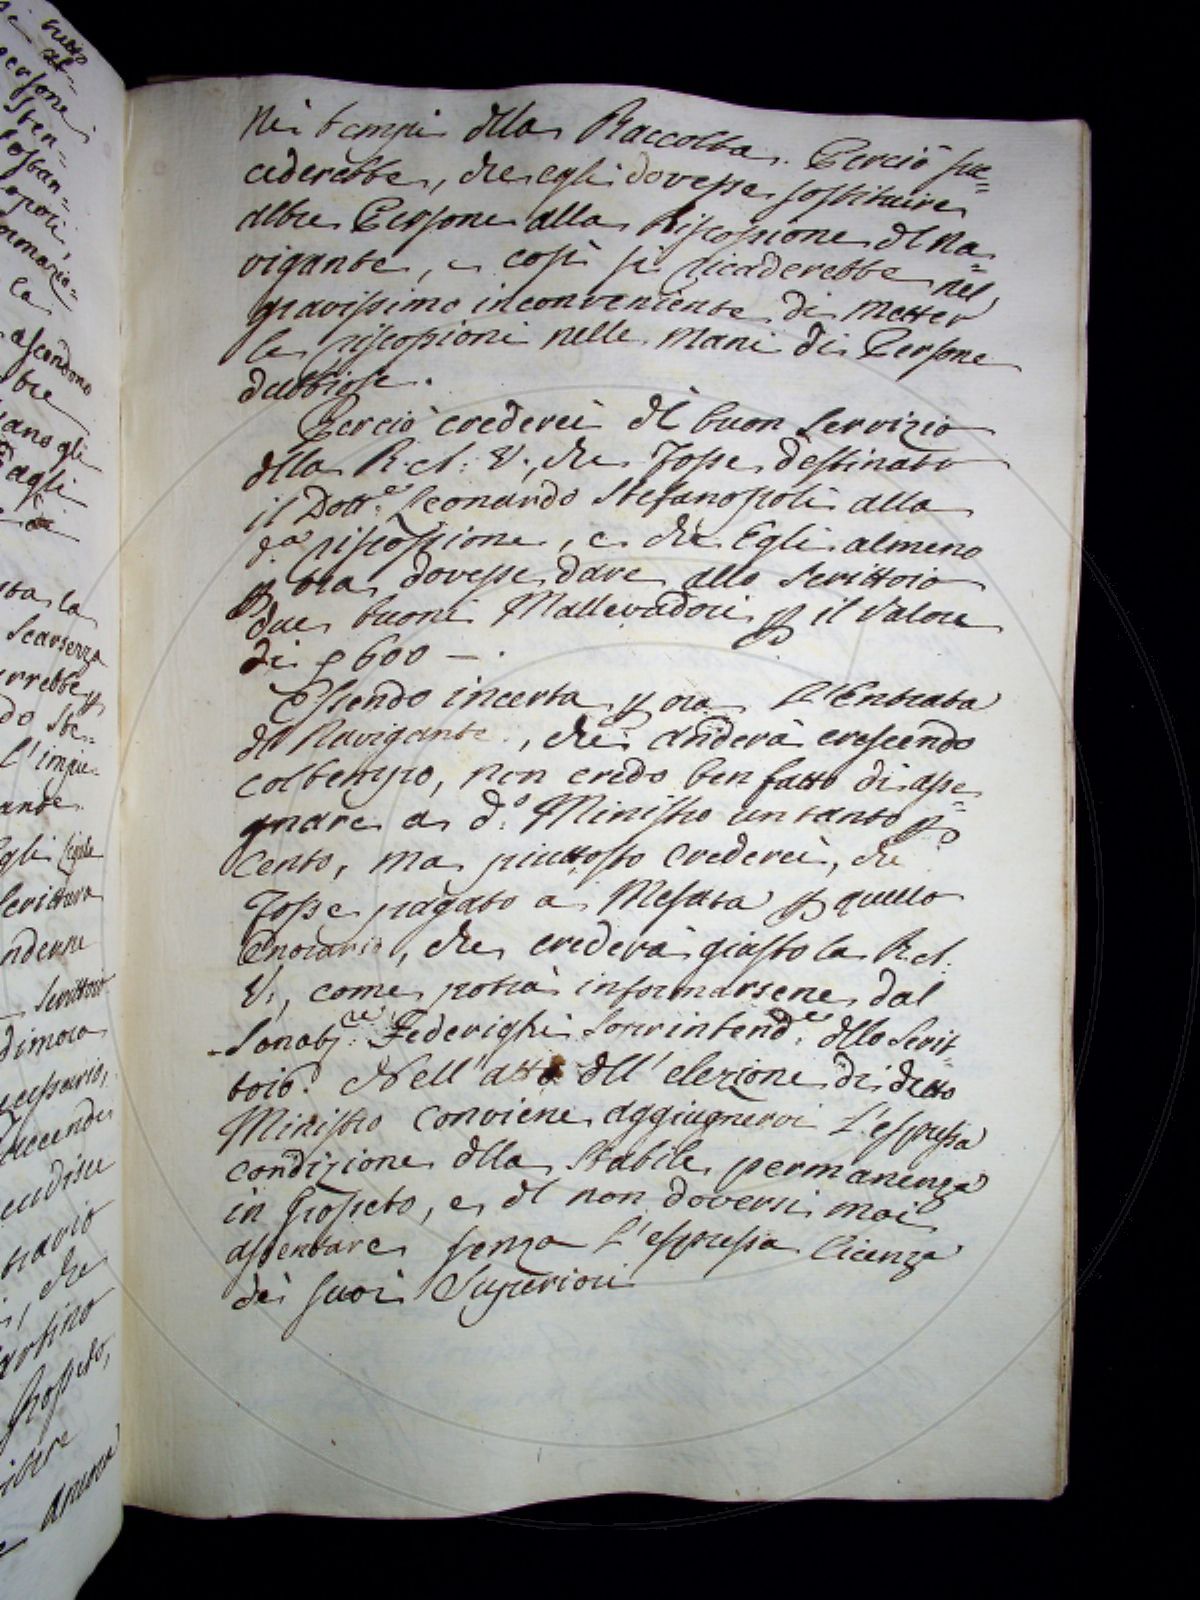 nei tempi dlla Raccolta. Perciò suc=
cederebbe, che egli dovesse sostituire
altre Persone alla Riscossione del Na=
vigante, e così si ricaderebbe nel
gravissimo inconveniente di metter
le riscossioni nelle mani di Persone
dubbiose.
Perciò crederei dl buon servizio
dlla R. A: V., che fosse destinato
il Dott.e Leonardo Stefanopoli alla
d.a riscossione, e che Egli almeno
p ora dovesse dare allo Scrittoio
due buoni Mallevadori p il Valore
di 600 —.
Essendo incerta p ora L'Entrata
dl Navigante, che anderà crescendo
col tempo, non credo ben fatto di asse=
gnare a d.o Ministro un tanto p
Cento, ma piuttosto crederei, che
fosse pagato a Mesata p quello
Onorario, che crederà giusto la R. A.
V., come potrà informarsene dal
Senat.re Federighi Soprintend.e dllo Scrit=
toio. Nell'atto dll'elezione di detto
Ministro conviene aggiugnervi L'espressa
condizione dlla stabile permanenza
in Grosseto, e dl non doversi mai
assentare senza L'espressa licenza
dei suoi Superiori
tutto
al=
persone
sten=
la
ascendono
tre
gli
la
Scarsezza
do Ste=
l'impie=
ande
Egli
Scrittura
Scrittoio
dimora
accende
che
Grosseto,
ancora